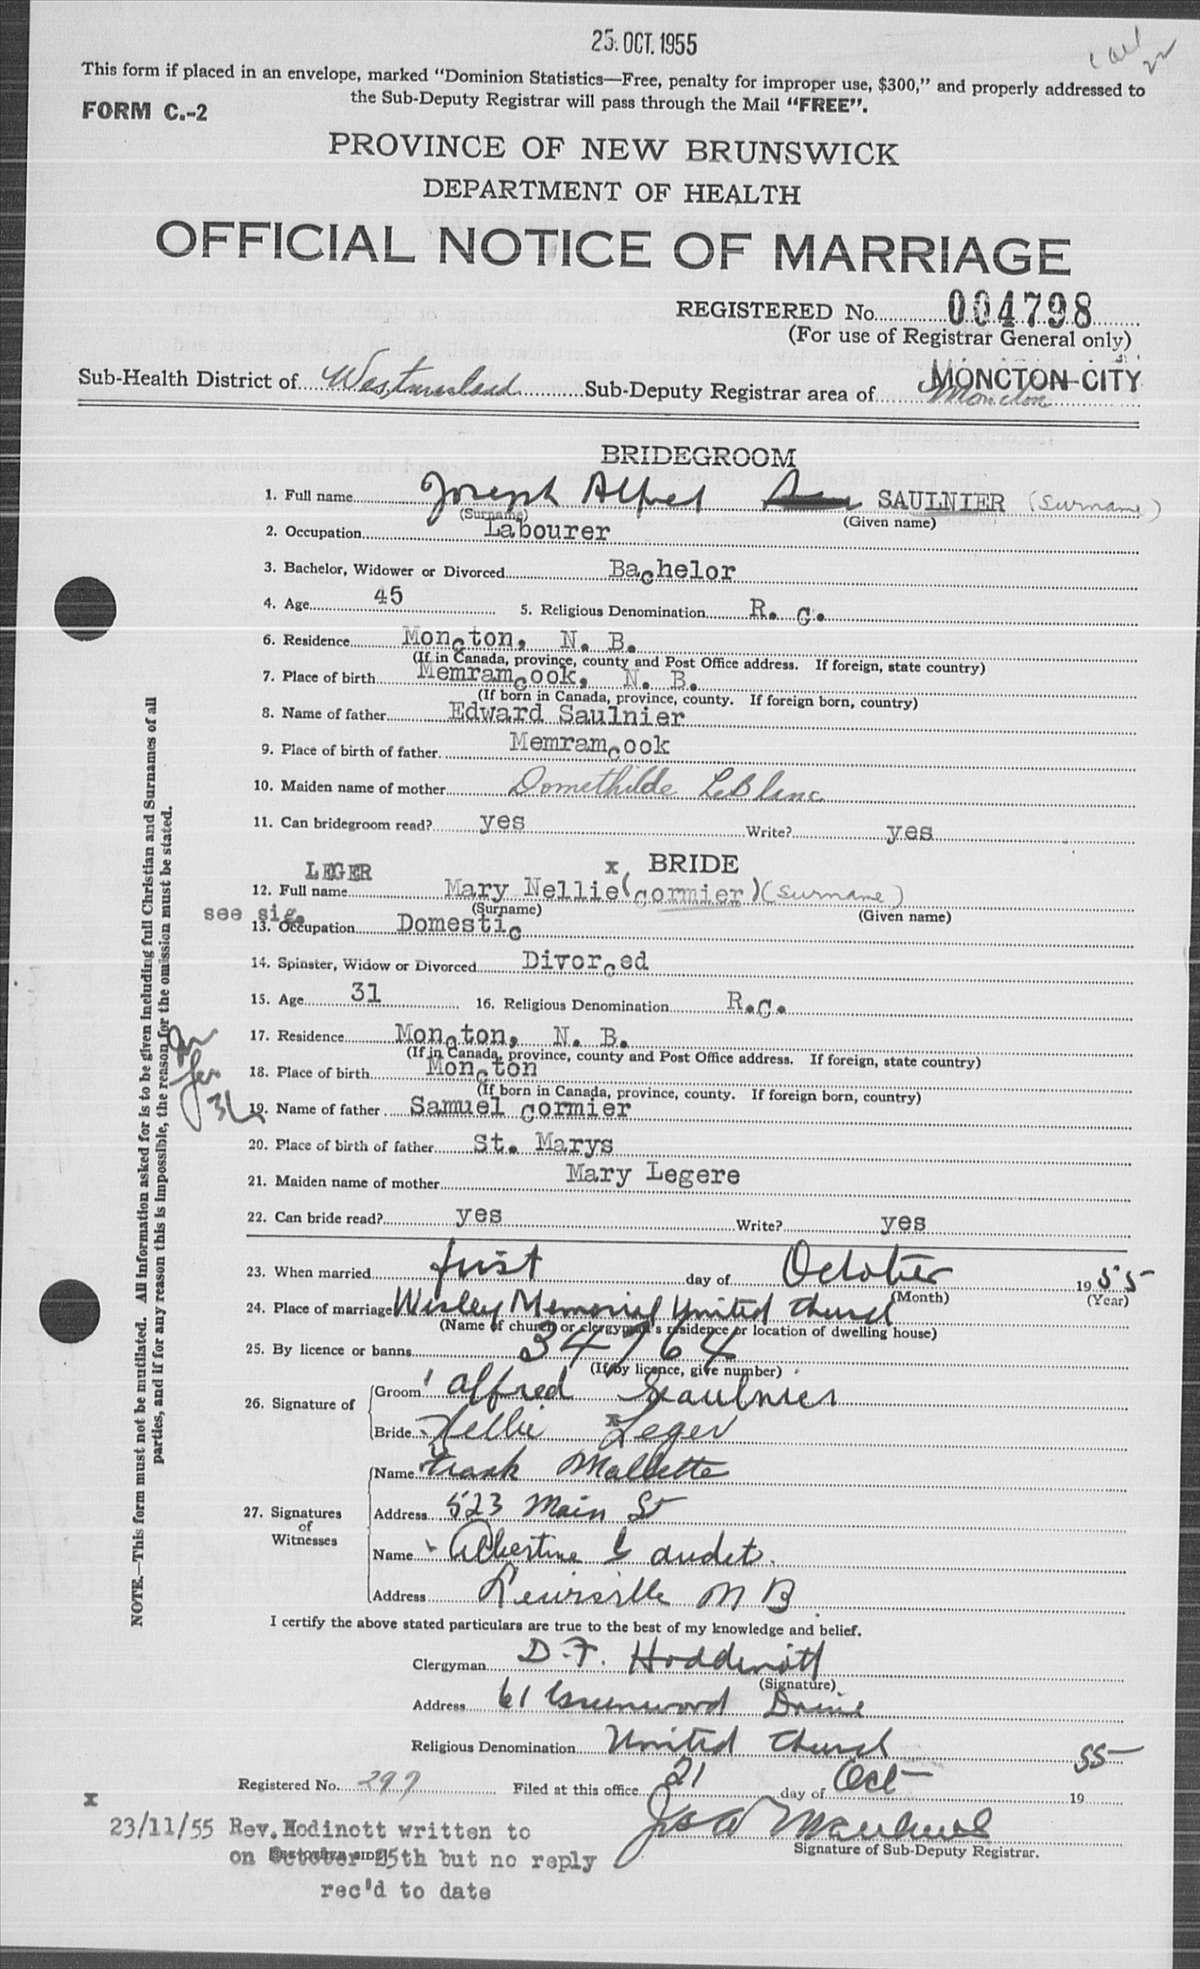 25. OCT. 1955
This form if placed in an envelope, marked "Dominion Statistics—Free, penalty for improper use, $300," and properly addressed to
the Sub-Deputy Registrar will pass through the Mail "FREE".
FORM C.-2
PROVINCE OF NEW BRUNSWICK
DEPARTMENT OF HEALTH
OFFICIAL NOTICE OF MARRIAGE
REGISTERED No. 004798
(For use of Registrar General only)
MONCTON CITY
Sub-Health District of Westmorland Sub-Deputy Registrar area of Moncton
BRIDEGROOM
1. Full name Joseph Alfred SAULNIER (Surname)
(Surname) (Given name)
2. Occupation Labourer
3. Bachelor, Widower or Divorced Bachelor
4. Age 45 5. Religious Denomination R. C.
6. Residence Moncton, N. B.
(If in Canada, province, county and Post Office address. If foreign, state country)
7. Place of birth Memramcook, N. B.
(If born in Canada, province, county. If foreign born, country)
8. Name of father Edward Saulnier
9. Place of birth of father Memramcook
10. Maiden name of mother Domethilde LeBlanc
11. Can bridegroom read? yes Write? yes
LEGER x BRIDE
12. Full name Mary Nellie (Cormier) (Surname)
(Surname) (Given name)
see sig.
13. Occupation Domestic
14. Spinster, Widow or Divorced Divorced
15. Age 31 16. Religious Denomination R.C.
17. Residence Moncton, N. B.
(If in Canada, province, county and Post Office address. If foreign, state country)
18. Place of birth Moncton
(If born in Canada, province, county. If foreign born, country)
19. Name of father Samuel Cormier
20. Place of birth of father St. Marys
21. Maiden name of mother Mary Legere
22. Can bride read? yes Write? yes
23. When married first day of October 1955
(Month) (Year)
24. Place of marriage Wesley Memorial United Church
(Name of church or clergyman's residence or location of dwelling house)
25. By licence or banns 34764
(If by licence, give number)
26. Signature of
Groom Alfred Saulnier
Bride Nellie x Leger
27. Signatures of Witnesses
Name Frank Mallette
Address 523 Main St
Name Albertine Gaudet.
Address Lewisville N B
I certify the above stated particulars are true to the best of my knowledge and belief.
Clergyman D. F. Hoddinott
(Signature)
Address 61 Greenwood Drive
Religious Denomination United Church
Registered No. 297 Filed at this office 21 day of Oct 1955
Signature of Sub-Deputy Registrar.
x
23/11/55 Rev. Hodinott written to
on October 25th but no reply
rec'd to date
NOTE.—This form must not be mutilated. All information asked for is to be given including full Christian and Surnames of all
parties, and if for any reason this is impossible, the reason for the omission must be stated.